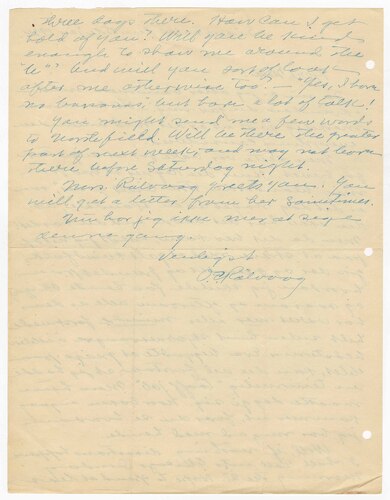 three days there. How can I get
hold of you? Will you be kind
enough to show me around the
"U" and will you sort of look
after me otherwise too. — "Yes, I have
no bananas", but have a lot of talk!
You might send me a few words
to Northfield. Will be there the greater
part of next week, and may not leave
there before Saturday night.
Mrs. Rölvaag greets you. You
will get a letter from her sometimes.
har jeg ikke mer at sige
denne gang.
Venligst
O.E. Rölvaag